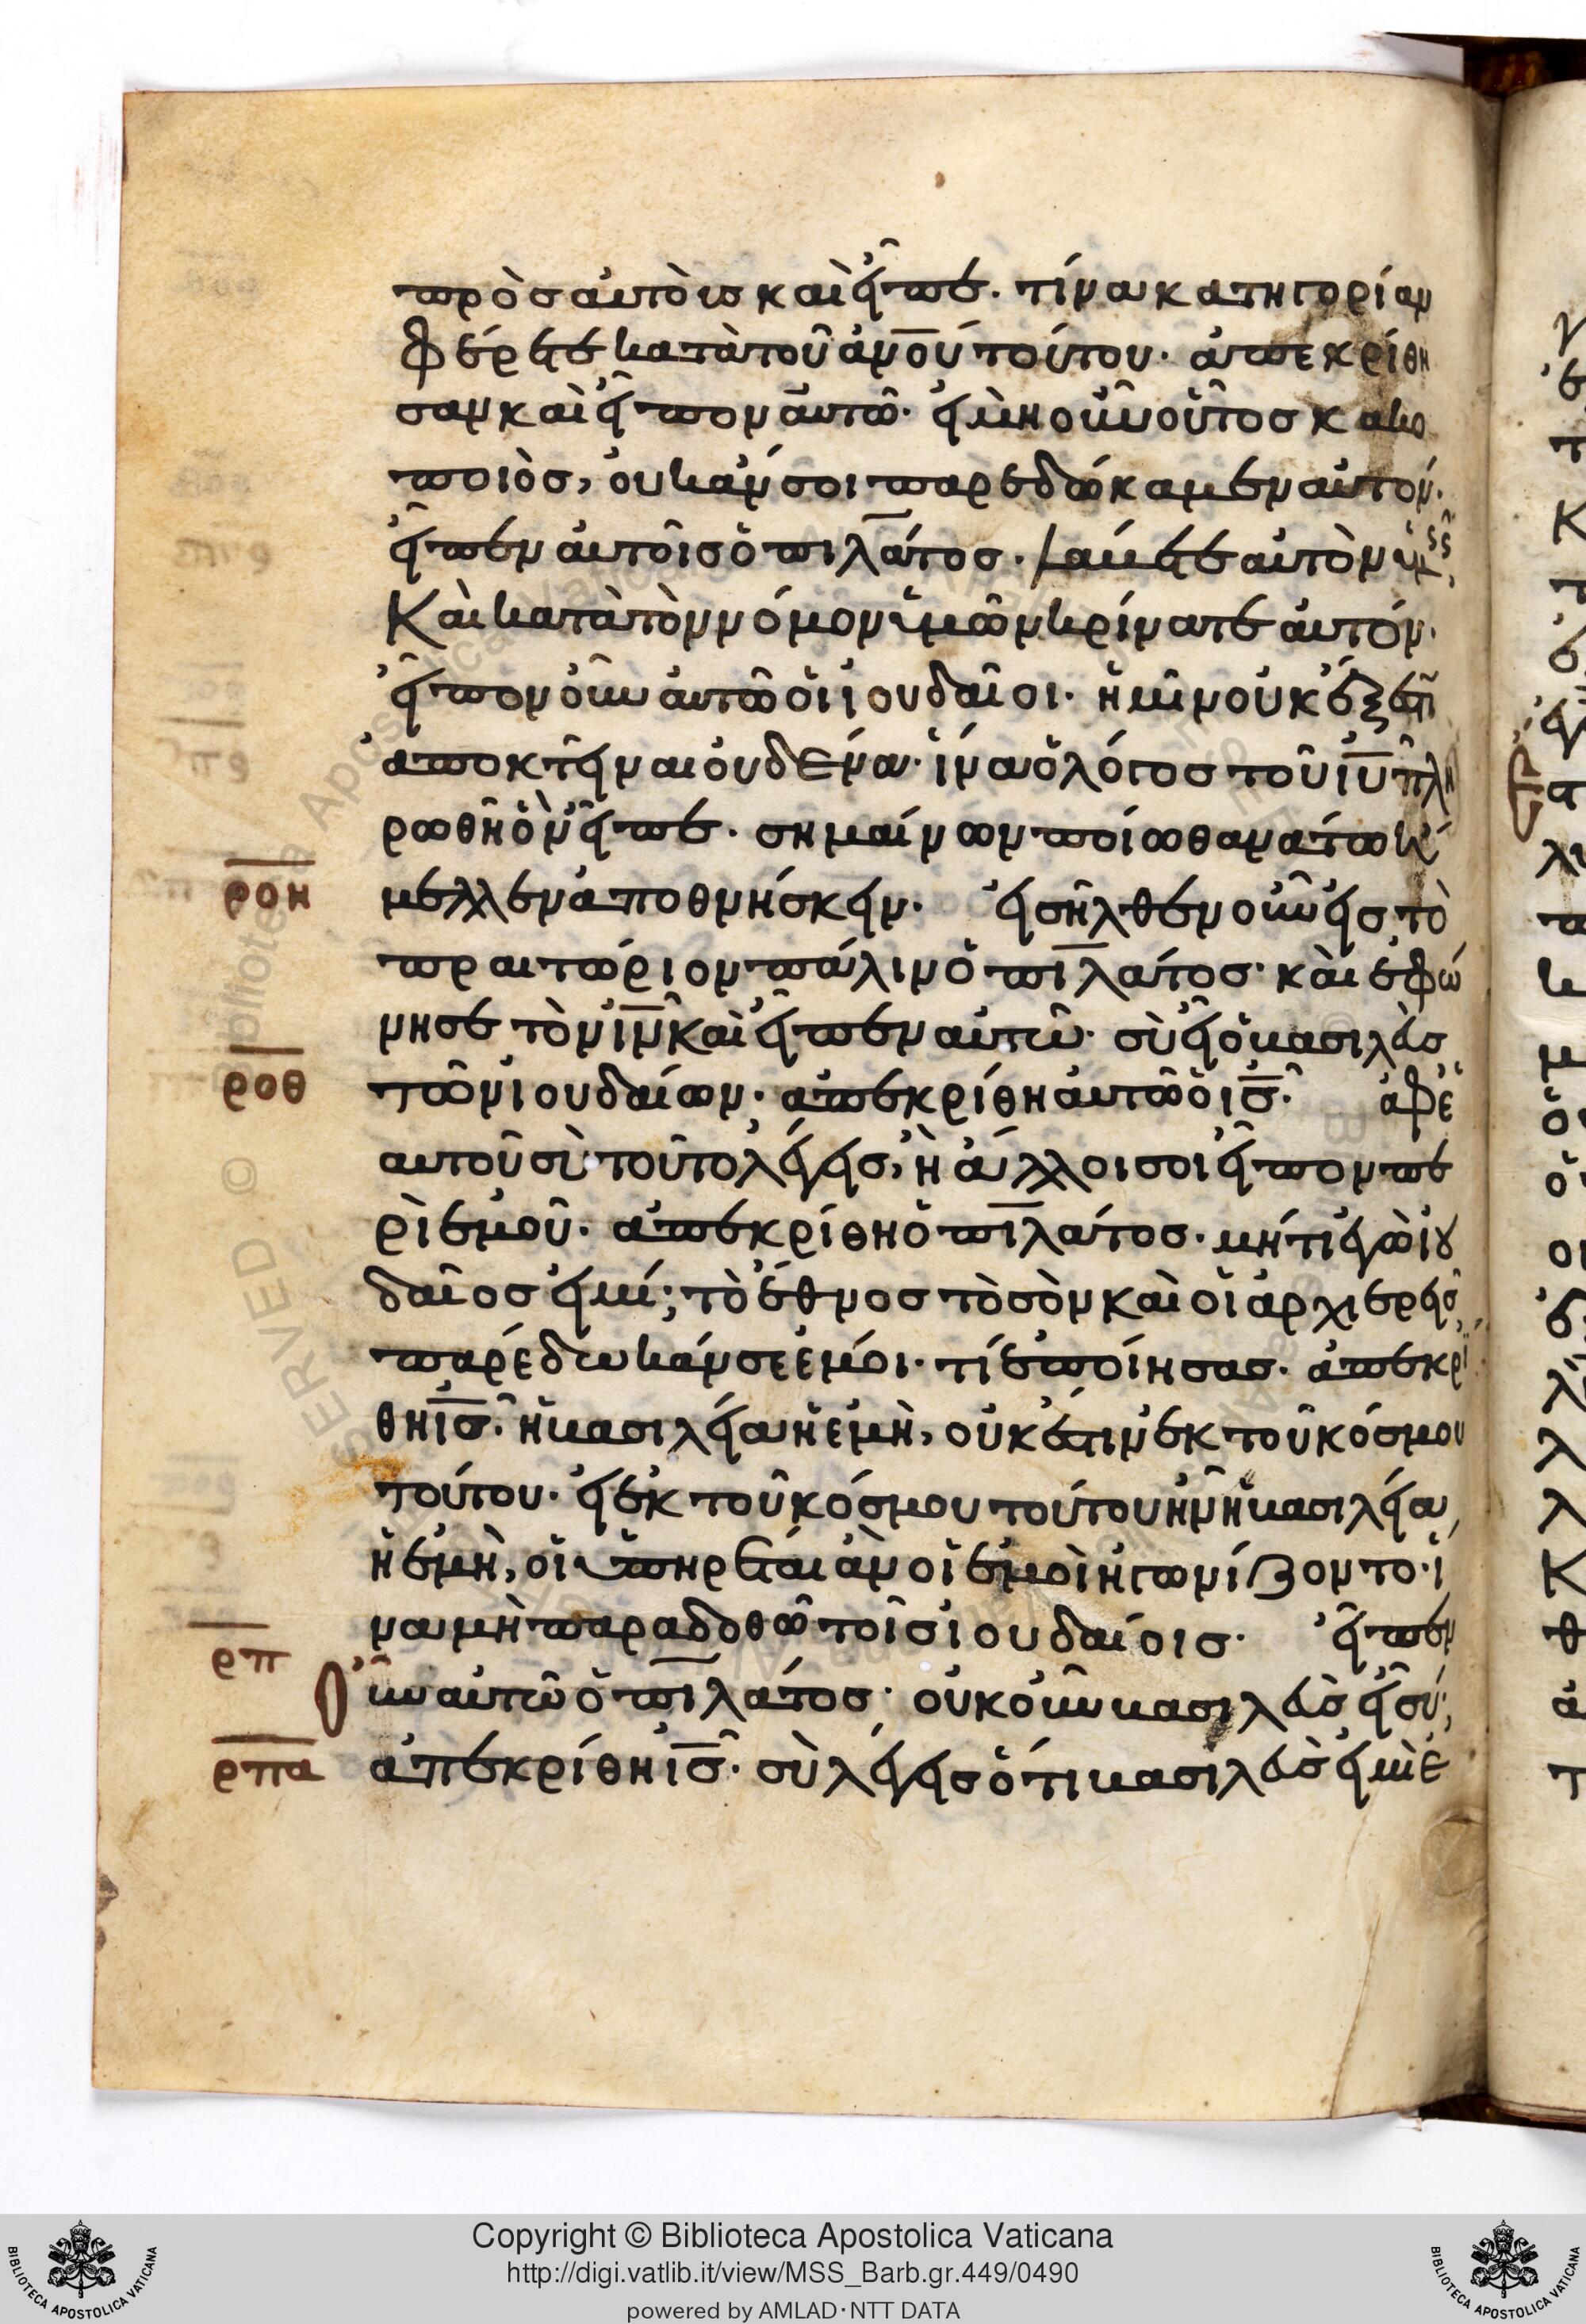 πρὸσ αυτὸυσ καὶ εἶπε· τίνα κατηγορίαν
φέρετε κατὰ τοῦ ἀν̅ο̅ύ τούτου· ἀπεκρίθη
σαν καὶ εἶπον αυτῶ· εἰ μὴ οὖν οὗτοσ κακο
ποιὸσ, ουκ ἄν σοι παρεδώκαμεν αὐτόν·
εἶπεν αυτοῖσ ὁ πιλάτοσ· λάβετε αυτὸν ὑμεῖς
Καὶ κατὰ τὸν νόμον ὑμῶν κρίνατε αυτόν·
εἶπον οὖν αυτῶ ὁι ἰουδαῖοι· ἡμῖν οὐκ ἔξεστῖ
ἀποκτεῖναι ὀυδένα· ἵνα ὁ λόγοσ τοῦ ἰ̅υ̅ πλη
ρωθῆ ὃν εἶπε· σημαίνων ποίω θανάτω
ροη μελλεν αποθνήσκειν· εἰσῆλθεν οὖν εἰσ τὸ
πραιτώριον πάλιν ὁ πιλάτοσ· καὶ ἐφώ
νησε τὸν ἰ̅ν̅ καὶ εἶπεν αυτῶ· σὺ εἶ ὁ βασιλεὺσ
ροθ τῶν ἰουδαίων· ἀπεκρίθη αυτῶ ὁ ἰ̅σ̅· ἀφ ἑ
αυτοῦ σὺ τοῦτο λέγεισ, ἢ ἄλλοι σοι εἶπον πε
ρὶ ἐμοῦ· ἀπεκρίθη ὁ πιλάτοσ· μήτι ἐγὼ ἰου
δαῖοσ εἰμί; τὸ ἔθνοσ τὸ σὸν καὶ οἱ ἀρχιερεῖσ
παρέδωκάν σε ἐμόι· τί ἐποίησασ· ἀπεκρί
θη ἰ̅σ̅· ἡ βασιλεία ἡ ἐμὴ, οὐκ ἔστιν ἐκ τοῦ κόσμου
τούτου· εἰ ἐκ τοῦ κόσμου τούτου ἦν ἡ βασιλεία
ἡ ἐμὴ, οἱ ὑπηρέται ἂν οἱ ἐμοὶ ἠγωνίζοντο· ἵ
να μὴ παραδοθῶ τοῖσ ἰουδαίοισ· εἶπεν
ρπ Οὖν αυτῶ ὁ πιλάτοσ· οὐκοῦν βασιλεὺσ εἶ σύ;
ρπα ἀπεκρίθη ἰ̅σ̅· σὺ λέγεισ ὅτι βασιλεύσ εἰμὶ ἐ
Copyright © Biblioteca Apostolica Vaticana
http://digi.vatlib.it/view/MSS_Barb.gr.449/0490
powered by AMLAD·NTT DATA
BIBLIOTECA APOSTOLICA VATICANA
BIBLIOTECA APOSTOLICA VATICANA